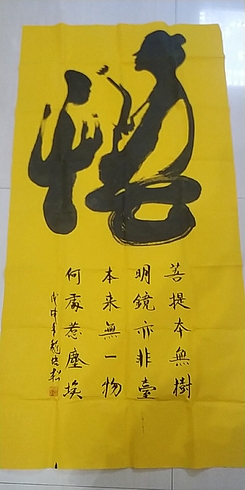 悟
菩提本無樹
明鏡亦非臺
本来無一物
何處惹塵埃